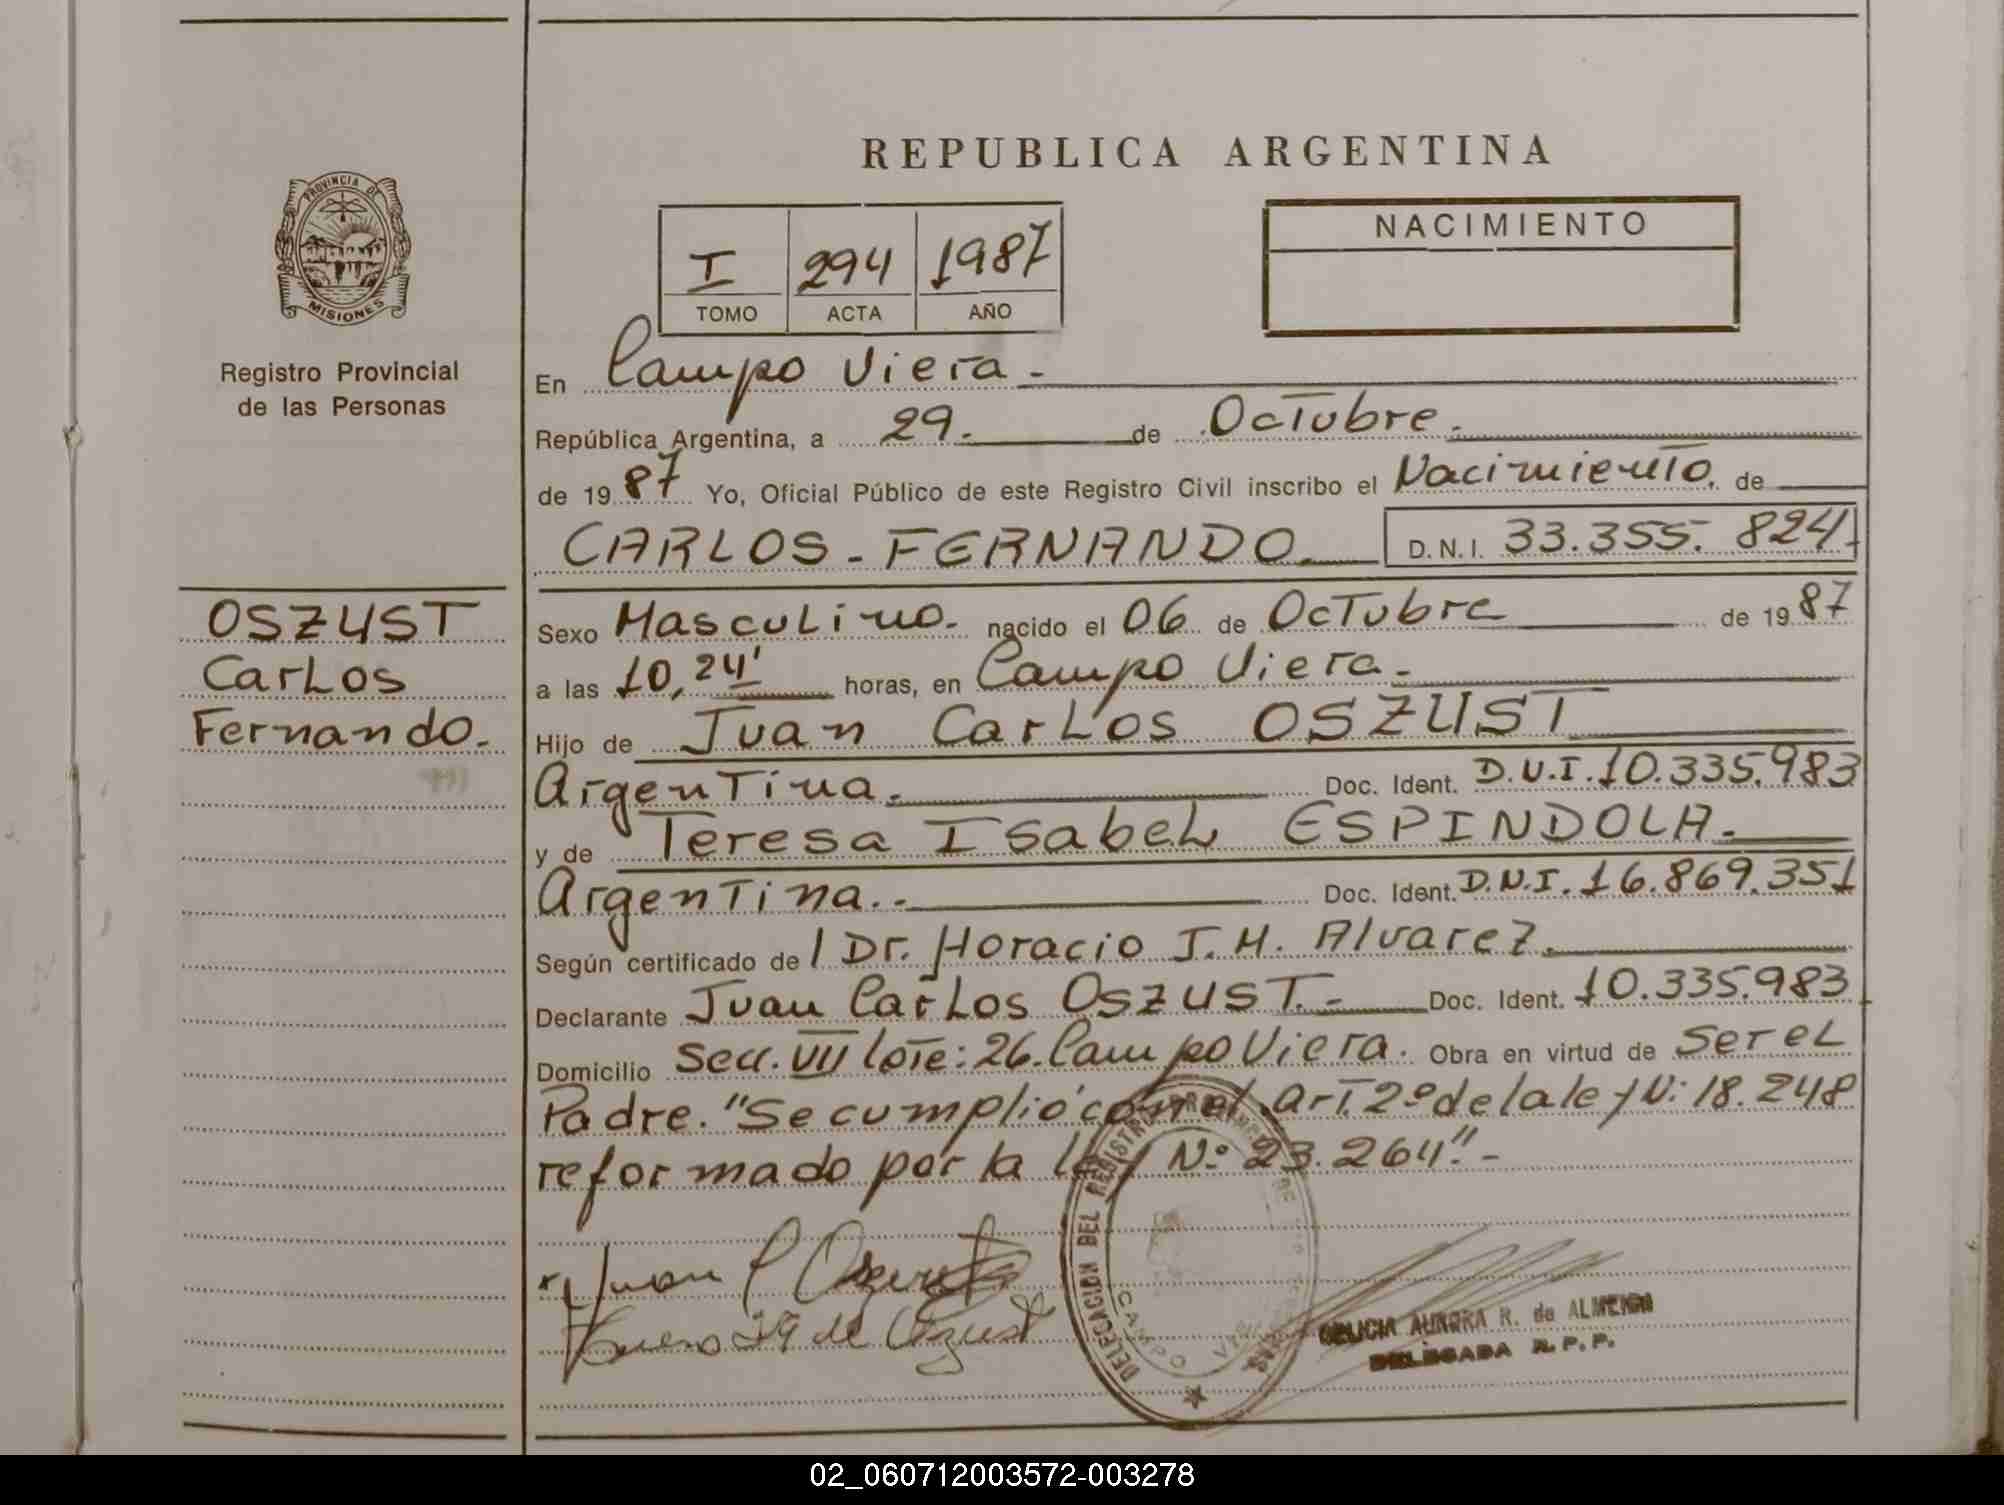 REPUBLICA ARGENTINA
PROVINCIA DE
MISIONES
Registro Provincial
de las Personas
I 294 1987
TOMO ACTA AÑO
NACIMIENTO
En Campo Viera.-
República Argentina, a 29. de Octubre.
de 1987 Yo, Oficial Público de este Registro Civil inscribo el Nacimiento. de
CARLOS-FERNANDO. D.N.I. 33.355.824.-
OSZUST
Carlos
Fernando.-
Sexo Masculino.- nacido el 06 de Octubre de 1987
a las 10,24' horas, en Campo Viera.-
Hijo de Juan Carlos OSZUST
Argentina.- Doc. Ident. D.N.I. 10.335.983
y de Teresa Isabel ESPINDOLA.-
Argentina..- Doc. Ident. D.N.I. 16.869.351
Según certificado de / Dr. Horacio J.M. Alvarez.
Declarante Juan Carlos OSZUST.- Doc. Ident. 10.335.983
Domicilio Secc. VII lote: 26. Campo Viera. Obra en virtud de ser el
Padre. "Se cumplió con el Art. 2º de la ley N: 18.248
reformado por la ley Nº 23.264".-
Juan C Oszust
de Oszust
DELEGACION DEL REGISTRO
CAMPO
DELICIA AURORA R. de ALMEIDA
DELEGADA R.P.P.
02_060712003572-003278